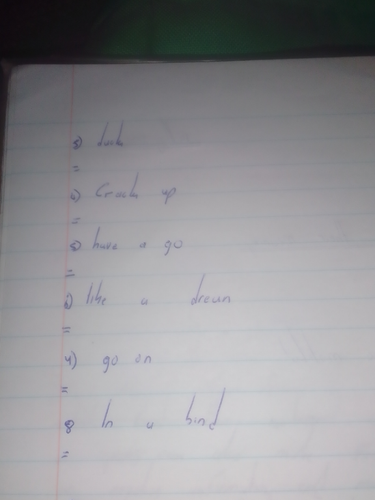 =
Crack up
=
have a go
=
like a dream
=
4) go on
=
In a bind
=